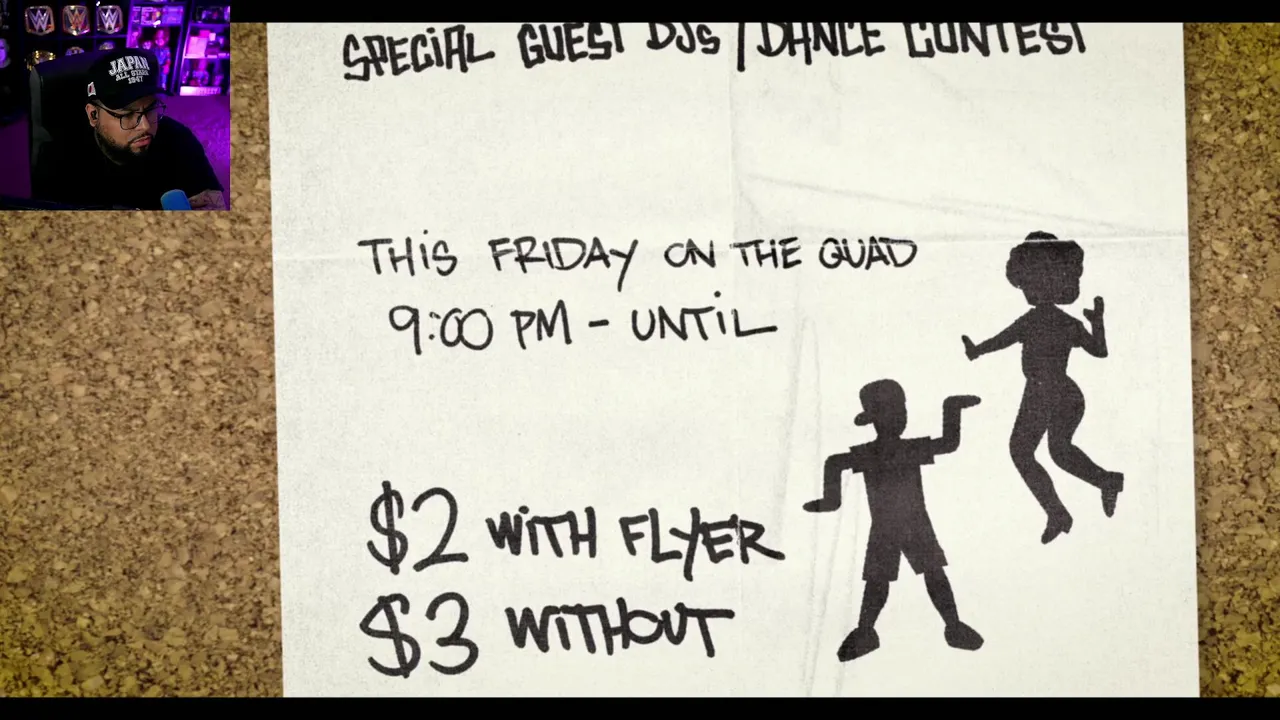 SPECIAL GUEST DJs / DANCE CONTEST
THIS FRIDAY ON THE QUAD
9:00 PM - UNTIL
$2 WITH FLYER
$3 WITHOUT
JAPAN
ALL STARS
1947